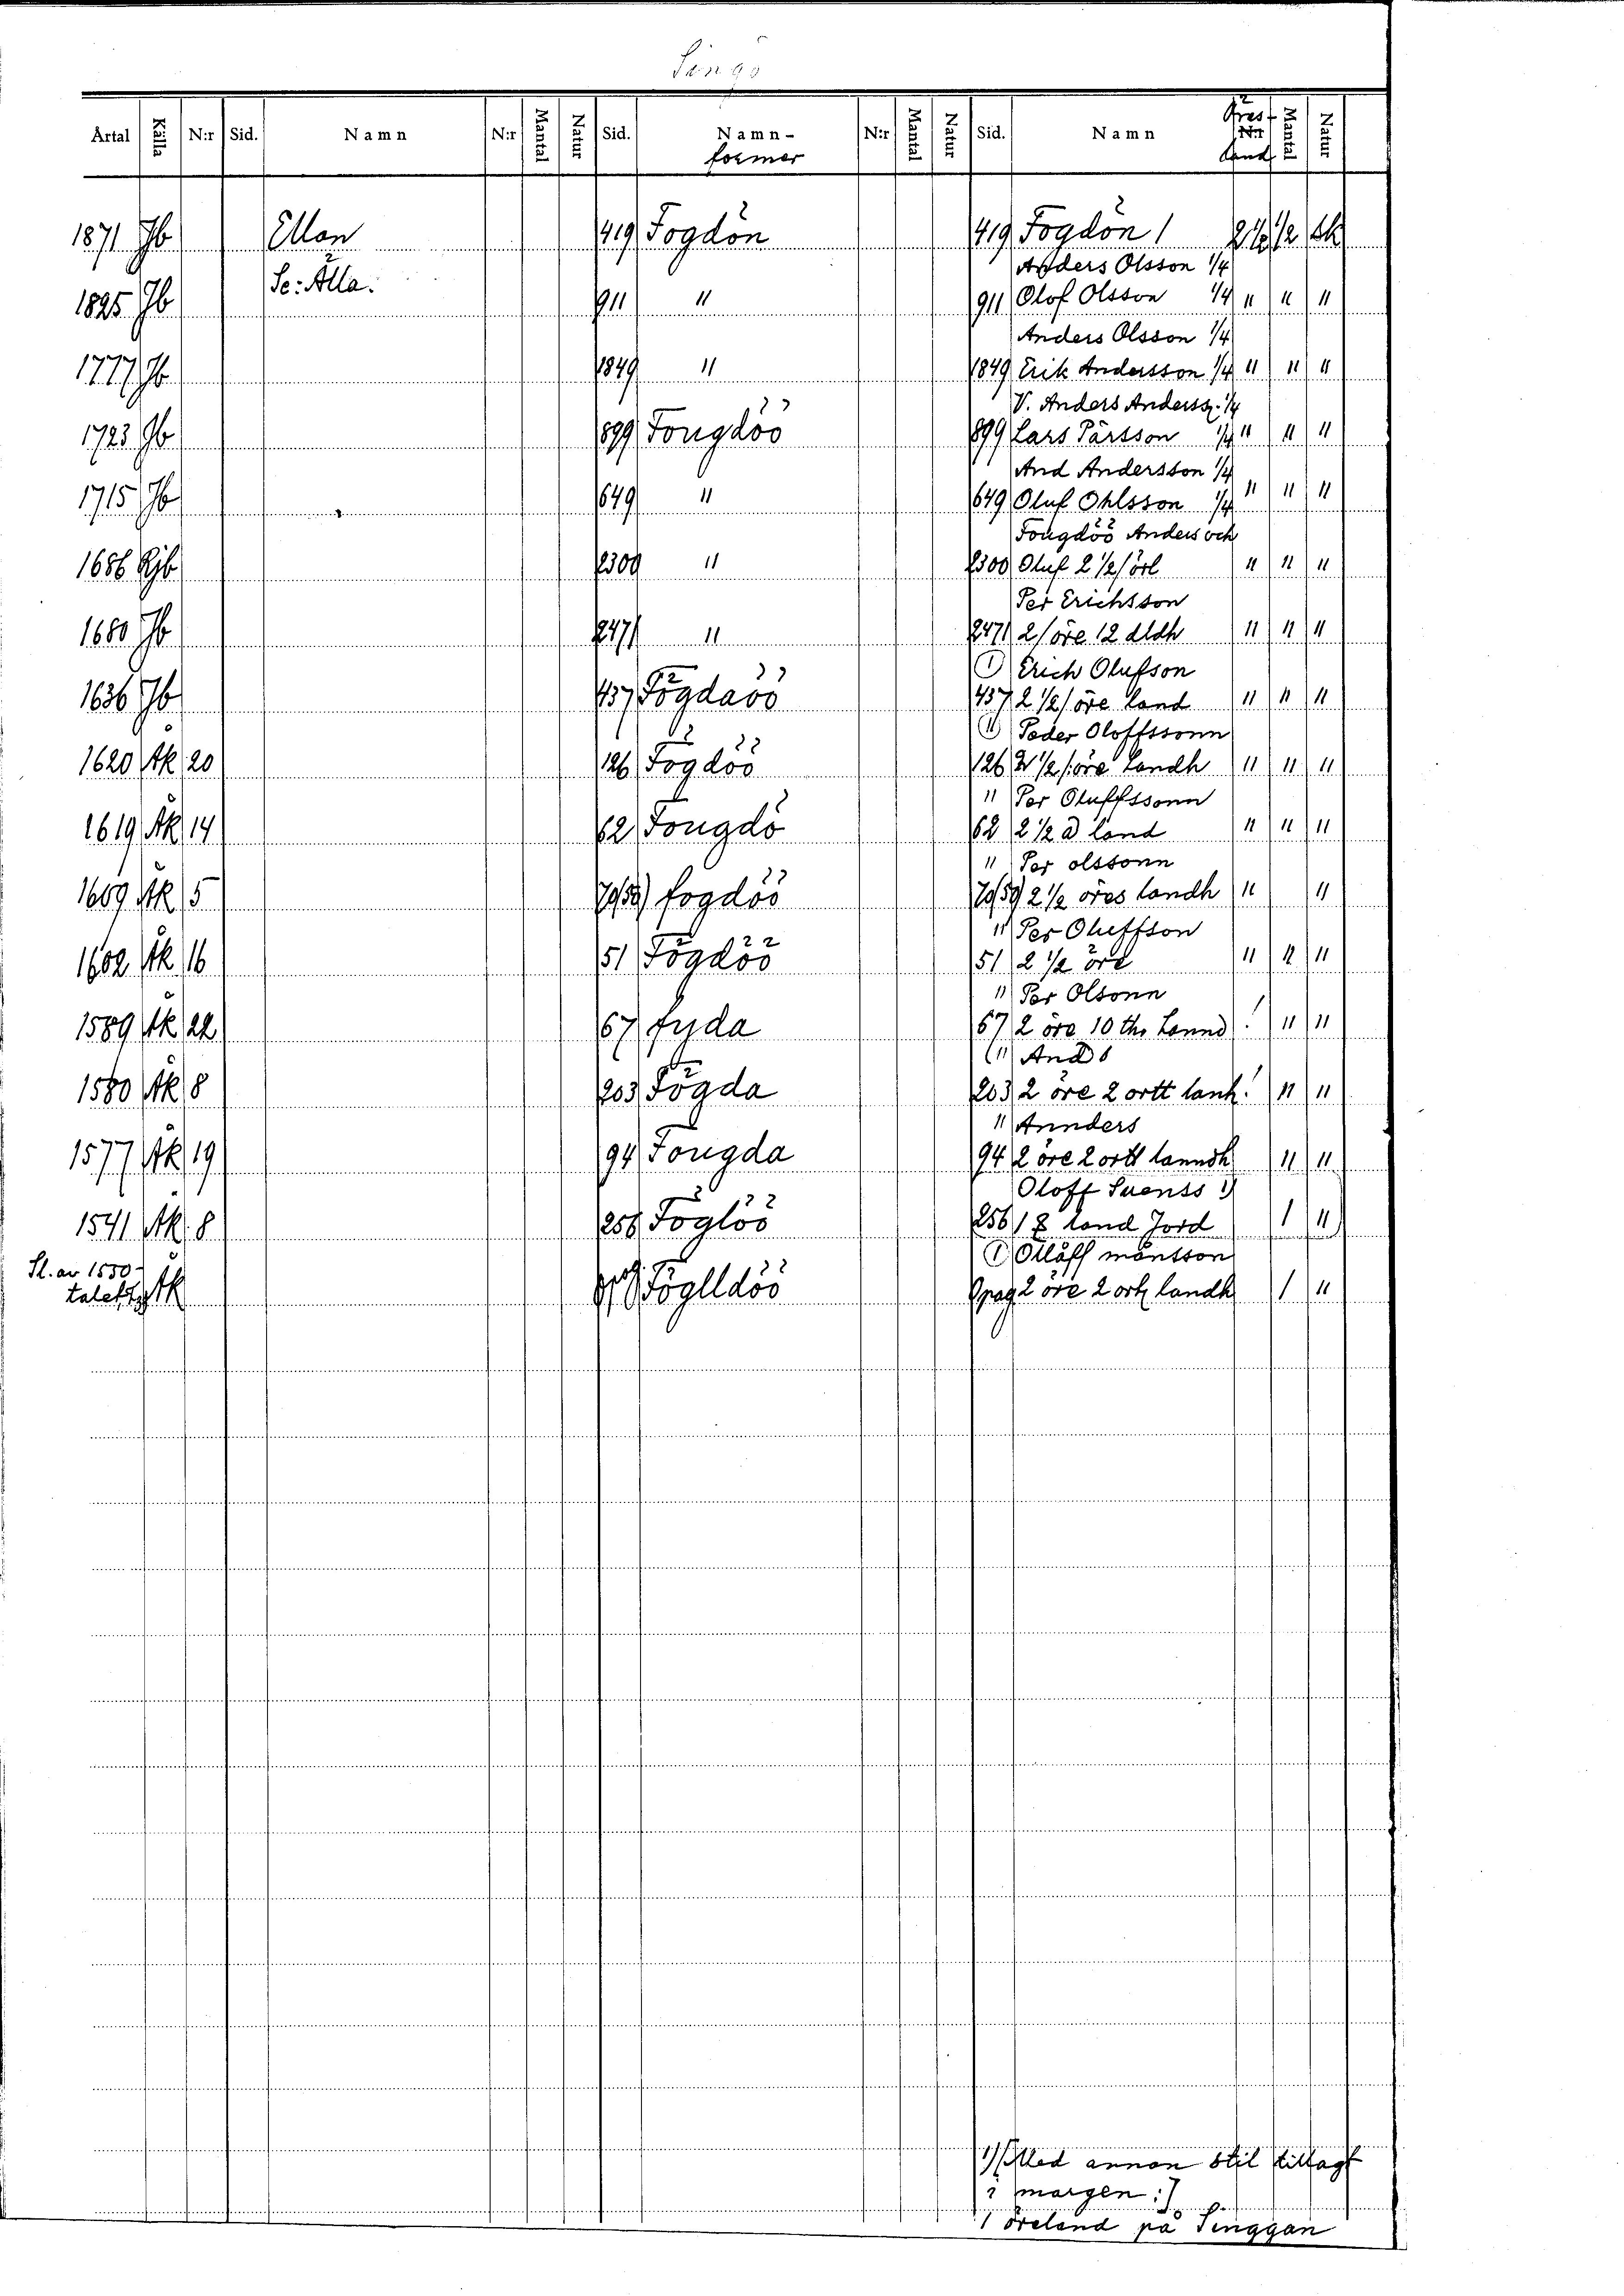 Singö
Årtal Källa N:r Sid. Namn N:r Mantal Natur Sid. Namn- N:r Mantal Natur Sid. Namn N:r Mantal Natur
former land
1871 Jb Ellan 419 Fogdön 419 Fogdön 1 2 1/2 1/2 sk
Se: Alla. Anders Olsson 1/4
1825 Jb 911 " 911 Olof Olsson 1/4 " " "
Anders Olsson 1/4
1777 Jb 1849 " 1849 Erik Andersson 1/4 " " "
V. Anders Anderss: 1/4
1723 Jb 899 Fougdöö 899 Lars Pärsson 1/4 " " "
And Andersson 1/4
1715 Jb 649 " 649 Oluf Ohlsson 1/4 " " "
Fougdöö Anders och
1686 Rjb 2300 " 2300 Oluf 2 1/2 / örl " " "
Per Erichsson
1680 Jb 2471 " 2471 2 / öre 12 dldh " " "
(1) Erich Olufson
1636 Jb 437 Fögdaöö 437 2 1/2 / öre land " " "
(1) Peder Oloffssonn
1620 Ak 20 126 Fogdöö 126 2 1/2 /: öre landh " " "
" Per Oluffssonn
1619 Ak 14 62 Fougdö 62 2 1/2 ö land " " "
" Per olssonn
1609 Ak 5 79(59) fogdöö 79(59) 2 1/2 öres landh " "
" Per Oluffson
1602 Ak 16 51 Fögdöö 51 2 1/2 öre " " "
" Per Olsonn
1589 Ak 22 67 fyda 67 2 öre 10 thr Lannd ! " "
(") And s
1580 Ak 8 203 Fögda 203 2 öre 2 ortt lanh. ! " "
" Annders
1577 Ak 19 94 Fougda 94 2 öre 2 ortt lanndh " "
Oloff Suenss 1)
1541 Ak 8 256 Föglöö 256 1 land Jord 1 "
(1) Ollåff månsson
Sl. av 1550-
talet Ak Föglldöö Opag 2 öre 2 ort landh 1 "
1) [Med annan stil tillagt
i margen:]
1 öreland på Singgan